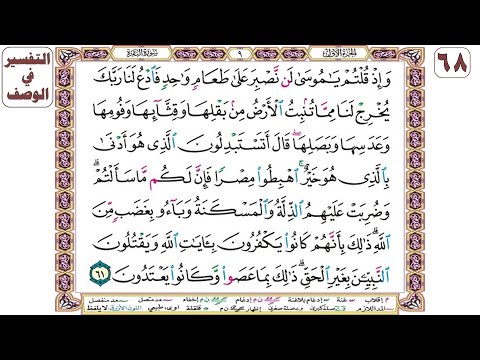 التفسير
في
الوصف
٦٨
سورة البقرة
٩
الجزء الأول
وَإِذْ قُلْتُمْ يَٰمُوسَىٰ لَن نَّصْبِرَ عَلَىٰ طَعَامٍ وَٰحِدٍ فَٱدْعُ لَنَا رَبَّكَ
يُخْرِجْ لَنَا مِمَّا تُنۢبِتُ ٱلْأَرْضُ مِنۢ بَقْلِهَا وَقِثَّآئِهَا وَفُومِهَا
وَعَدَسِهَا وَبَصَلِهَا ۖ قَالَ أَتَسْتَبْدِلُونَ ٱلَّذِى هُوَ أَدْنَىٰ
بِٱلَّذِى هُوَ خَيْرٌ ۚ ٱهْبِطُوا۟ مِصْرًا فَإِنَّ لَكُم مَّا سَأَلْتُمْ ۗ
وَضُرِبَتْ عَلَيْهِمُ ٱلذِّلَّةُ وَٱلْمَسْكَنَةُ وَبَآءُو بِغَضَبٍ مِّنَ
ٱللَّهِ ۗ ذَٰلِكَ بِأَنَّهُمْ كَانُوا۟ يَكْفُرُونَ بِـَٔايَٰتِ ٱللَّهِ وَيَقْتُلُونَ
ٱلنَّبِيِّـۧنَ بِغَيْرِ ٱلْحَقِّ ۗ ذَٰلِكَ بِمَا عَصَوا۟ وَّكَانُوا۟ يَعْتَدُونَ ٦١